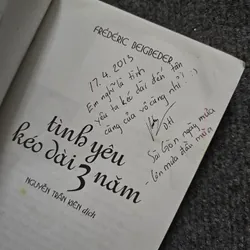 FRÉDÉRIC BEIGBEDER
17.4.2013
Em nghĩ là tình
yêu ta kéo dài đến tận
cùng của vô cùng nhỉ?:)
ĐH
Sài Gòn ngày mưa
- Cơn mưa đầu mùa
tình yêu
kéo dài 3 năm
NGUYỄN TRẦN KIÊN dịch